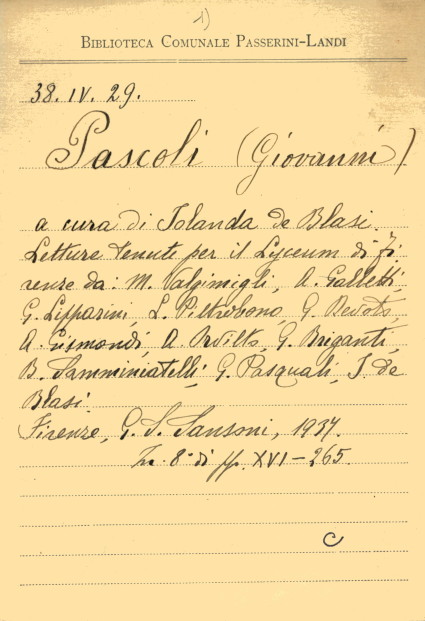 1)
BIBLIOTECA COMUNALE PASSERINI-LANDI
38. IV. 29.
Pascoli (Giovanni)
a cura di Iolanda de Blasi.
Letture tenute per il Lyceum di Fi-
renze da: M. Valgimigli, A. Galletti,
G. Lipparini, L. Pietrobono, G. Devoto,
A. Gismondi, A. G. Briganti,
B. Samminiatelli, G. Pasquali, I. de
Blasi.
Firenze, G. S. Sansoni, 1937.
In 8° di pp. XVI-265.
C